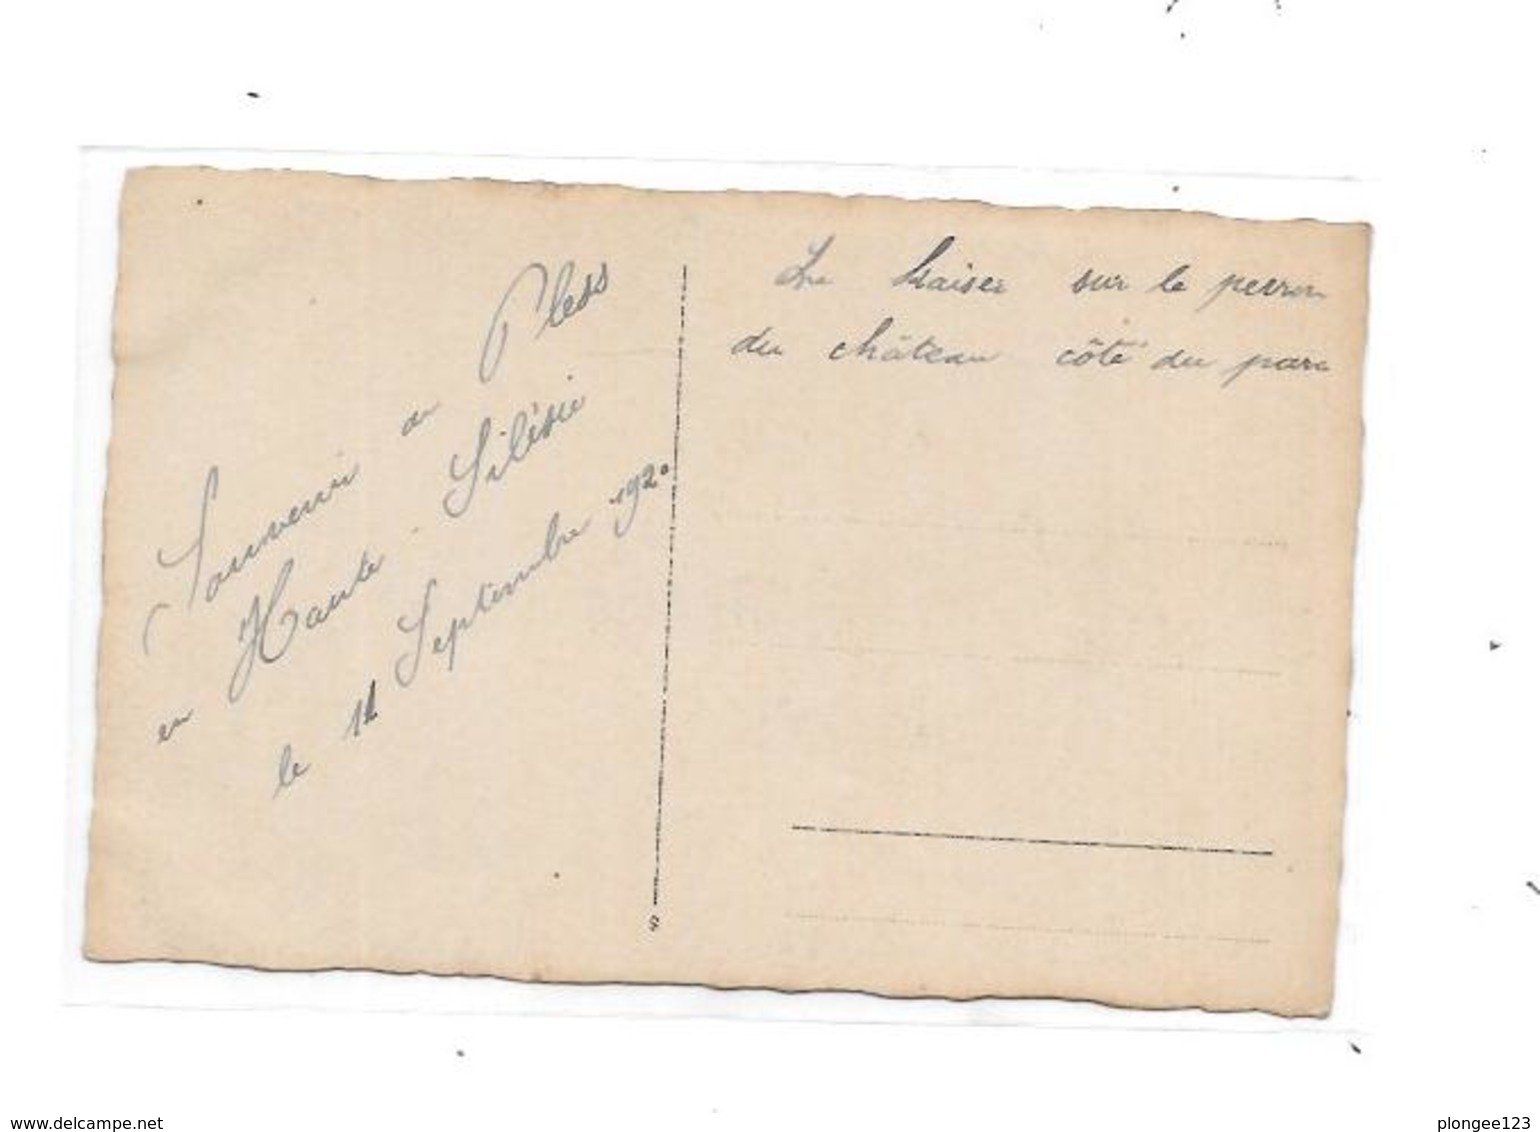 Souvenir de Pless
en Haute-Silésie
le 11 Septembre 1920
Le Kaiser sur le perron
du château côté du parc
8
www.delcampe.net
plongee123